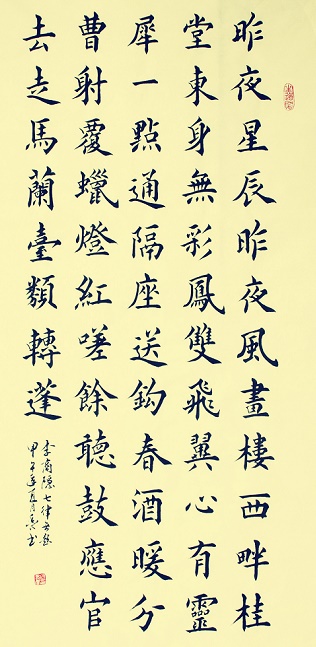 昨夜星辰昨夜風畫樓西畔桂
堂東身無彩鳳雙飛翼心有靈
犀一點通隔座送鈎春酒暖分
曹射覆蠟燈紅嗟餘聽鼓應官
去走馬蘭臺類轉蓬
李商隱七律
甲午年 月 書